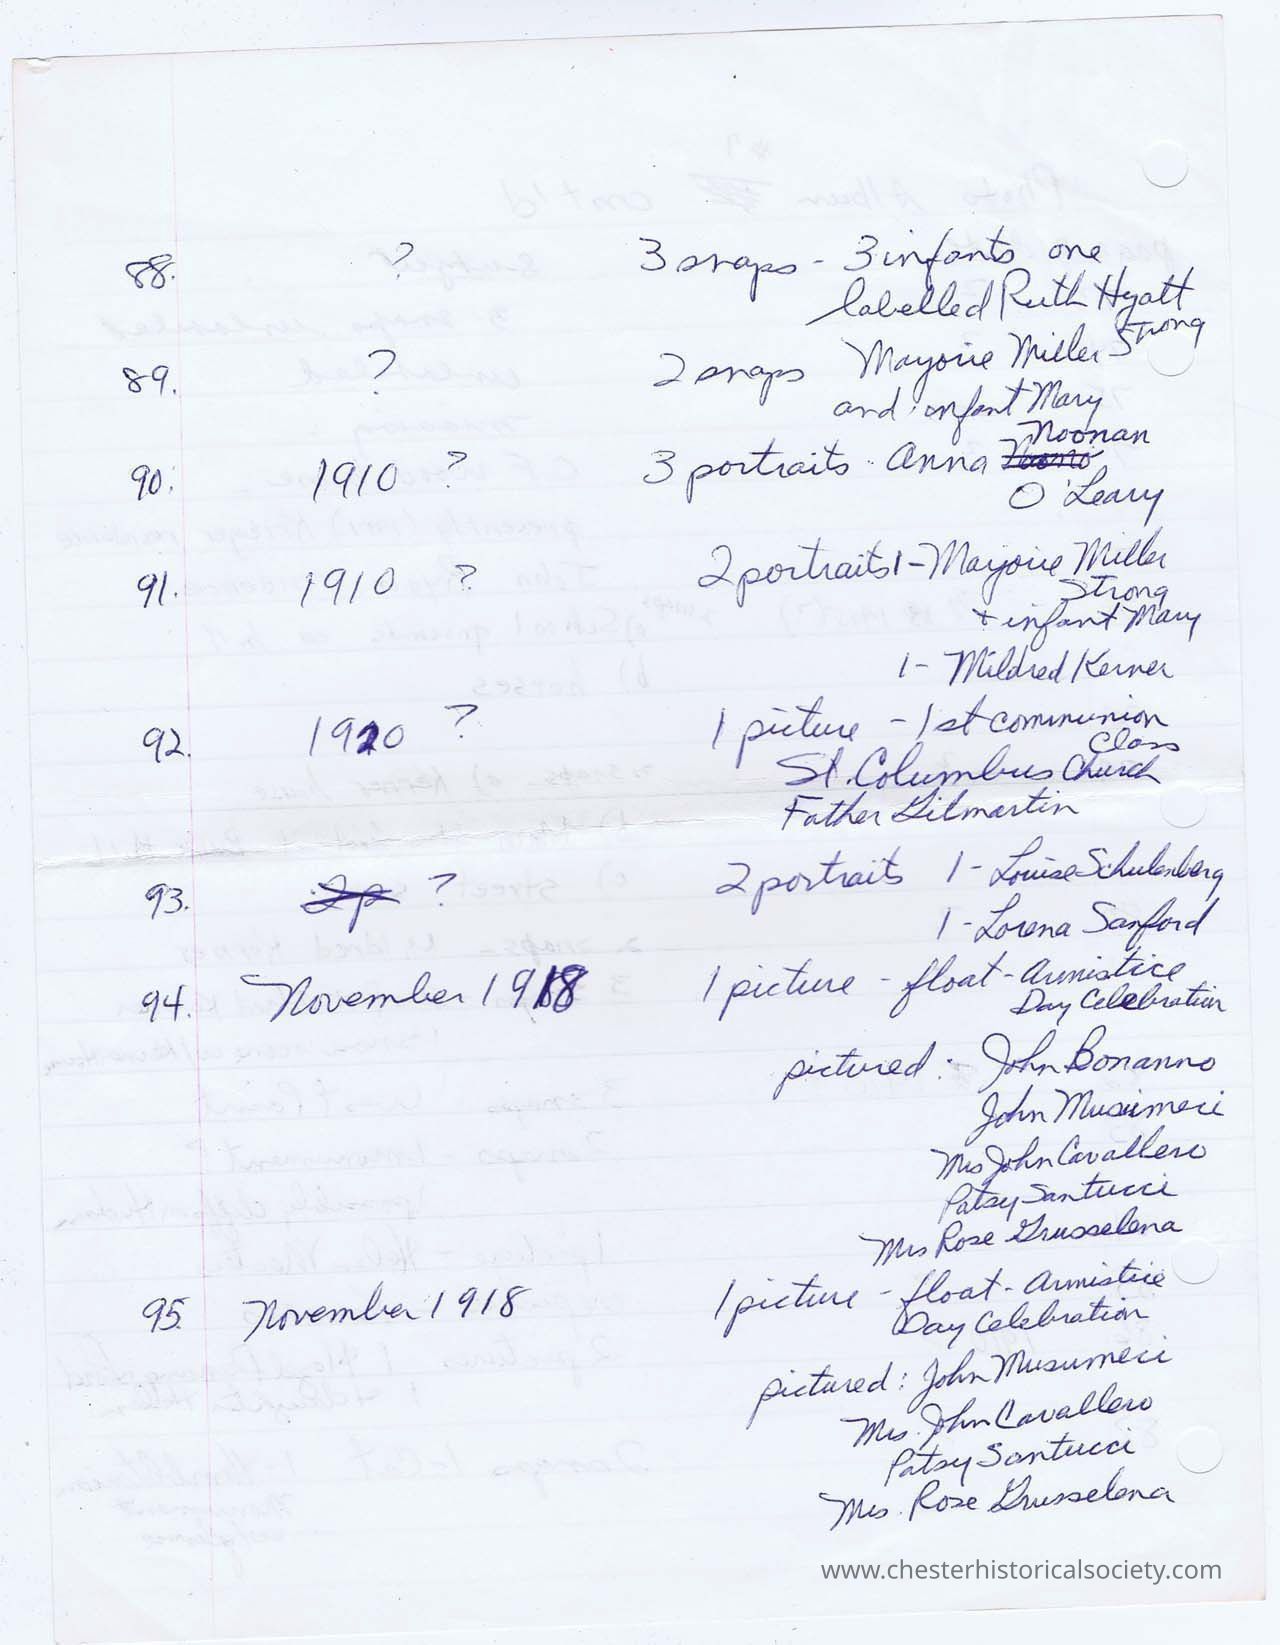 88. ? 3 snaps - 3 infants one
labelled Ruth Hyatt
89. ? 2 snaps Marjorie Miller Strong
and infant Mary
Noonan
90. 1910 ? 3 portraits - Anna
O'Leary
91. 1910 ? 2 portraits 1 - Marjorie Miller
Strong
+ infant Mary
1 - Mildred Kerner
92. 1920 ? 1 picture - 1st communion
Class
St. Columbus Church
Father Gilmartin
93. 2p ? 2 portraits 1 - Louise Schulenberg
1 - Lorena Sanford
94. November 1918 1 picture - float - Armistice
Day Celebration
pictured : John Bonanno
John Musumeci
Mrs John Cavallero
Patsy Santucci
Mrs Rose Grusselena
95. November 1918 1 picture - float - Armistice
Day Celebration
pictured : John Musumeci
Mrs. John Cavallero
Patsy Santucci
Mrs. Rose Grusselena
www.chesterhistoricalsociety.com